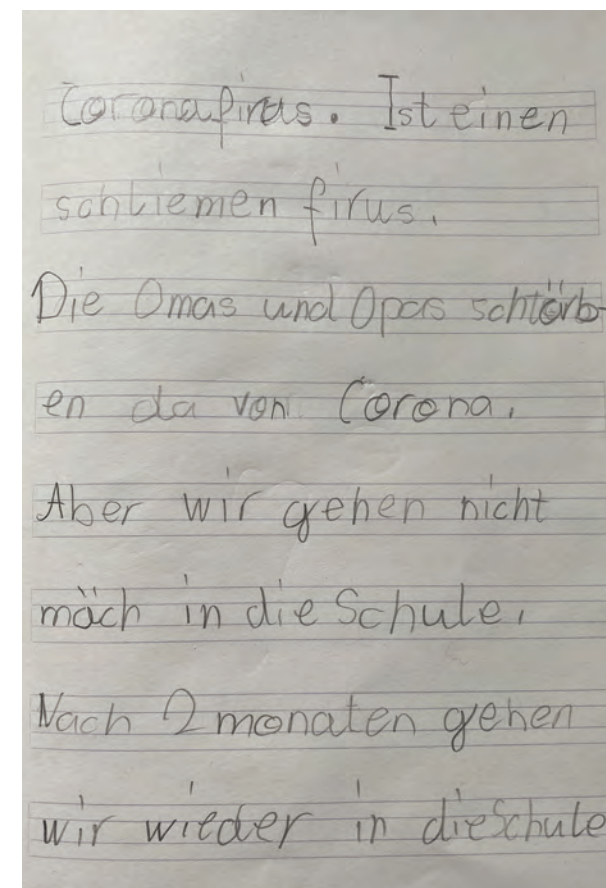 Coronafirus. Ist einen
schliemen firus.
Die Omas und Opas schtörb-
en da von Corona.
Aber wir gehen nicht
mäch in die Schule.
Nach 2 monaten gehen
wir wieder in dieSchule